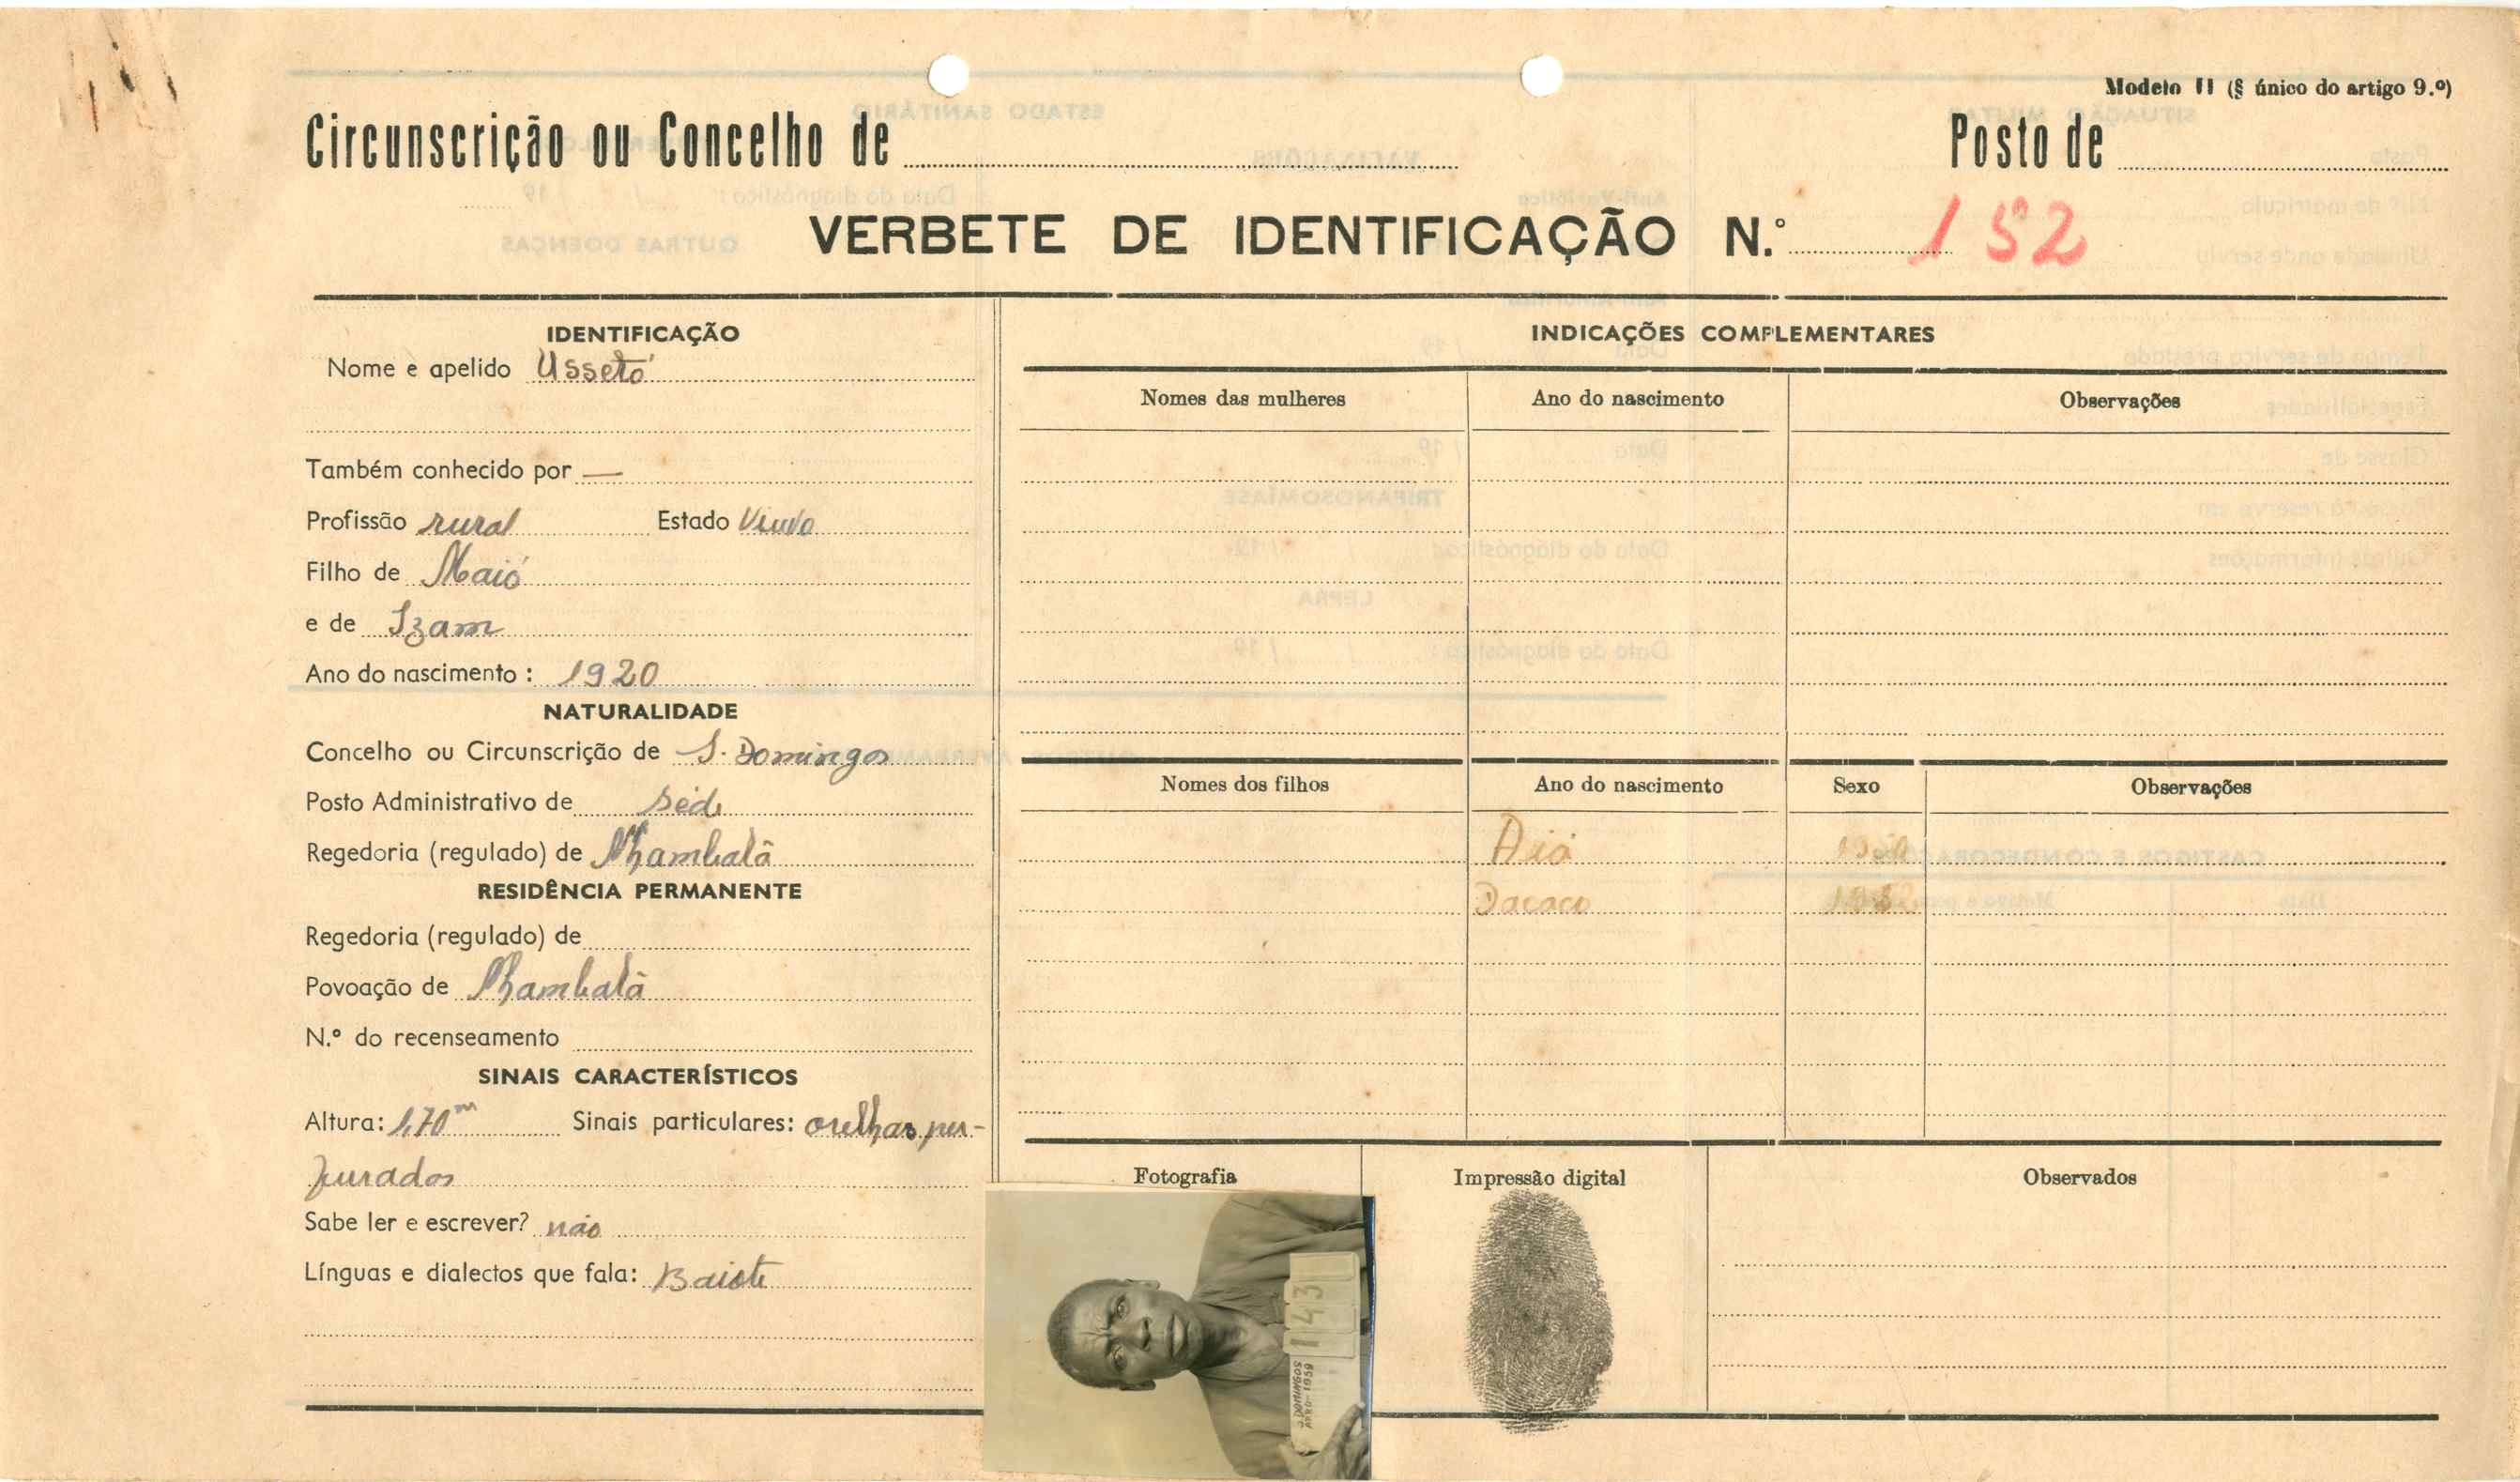 Modelo 11 (§ único do artigo 9.º)
Circunscrição ou Concelho de
Posto de
VERBETE DE IDENTIFICAÇÃO N.º 152
IDENTIFICAÇÃO
Nome e apelido Ussetó
Também conhecido por —
Profissão rural Estado Viuvo
Filho de Maió
e de Izam
Ano do nascimento : 1920
NATURALIDADE
Concelho ou Circunscrição de S. Domingos
Posto Administrativo de séde
Regedoria (regulado) de Nhambalã
RESIDÊNCIA PERMANENTE
Regedoria (regulado) de
Povoação de Nhambalã
N.º do recenseamento
SINAIS CARACTERÍSTICOS
Altura: 1,70m Sinais particulares: orelhas per-
furados
Sabe ler e escrever? não
Línguas e dialectos que fala: Baiote
INDICAÇÕES COMPLEMENTARES
Nomes das mulheres Ano do nascimento Observações
Nomes dos filhos Ano do nascimento Sexo Observações
Aiá
Dacaco
Fotografia Impressão digital Observados
143
S.DOMINGOS
1959